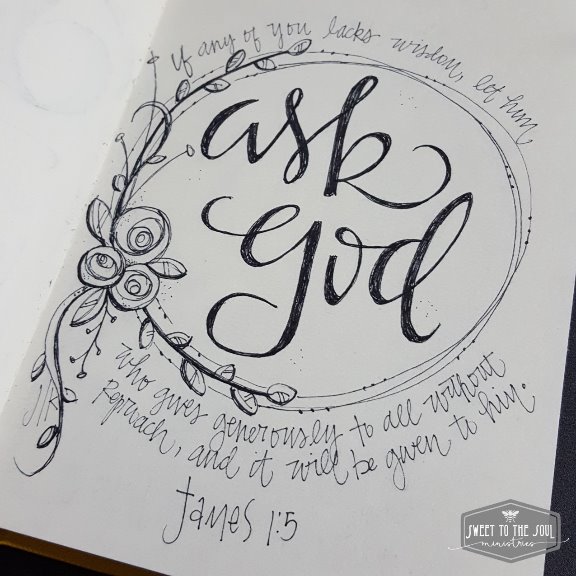 if any of you lacks wisdom, let him
ask
God
who gives generously to all without
Reproach, and it will be given to him.
James 1:5
SWEET TO THE SOUL
ministries